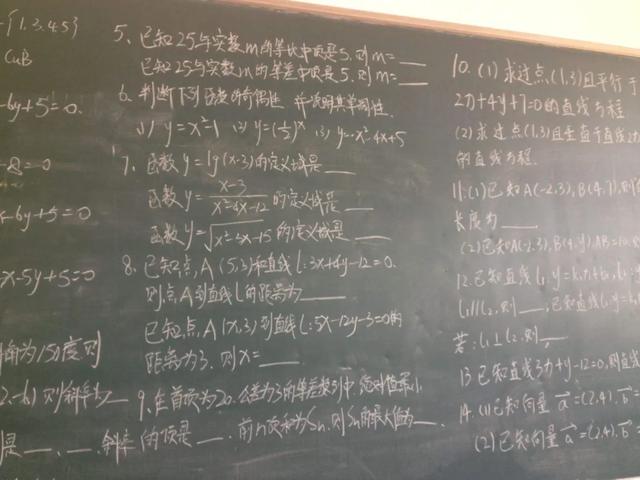 {1.3.4.5}
CuB
-6y+5=0.
-8=0
x-6y+5=0
x-5y+5=0
角为150度则
则斜率为
是 __ . __ . 斜率
5、已知25与实数m的等比中项是5.则m=__
已知25与实数m的等差中项是5.则m=__
6、判断下列函数的奇偶性 并说明其单调性.
(1) y=x²-1 (2) y=(½)ˣ (3) y=-x²-4x+5
7、函数y=lg(x-3)的定义域是__
函数y=x-3/x²-4x-12的定义域是__
函数y=√x²-2x-15的定义域是__
8、已知点A(5,3)和直线l:3x+4y-12=0.
则点A到直线l的距离为__
已知点A(x,3)到直线l:5x-12y-3=0的
距离为3.则x=__
9、在首项为20.公差为3的等差数列中.
的项是__.前n项和为Sn.则Sn的最大值为__.
10.(1)求过点(1,3)且平行于
2x+4y+7=0的直线方程
(2)求过点(1,3)且垂直于直线2x
的直线方程.
11.(1)已知A(-2,3),B(4,7),则
长度为__
(2)已知A(-2,3),B(4,y),AB=10,
12.已知直线l₁ y=k₁x+b₁,
l₁//l₂,则__,已知直线l₁ y=k
若:l₁⊥l₂,则__
13 已知直线3x+y-12=0,则直线
14.(1)已知向量 a=(2,4).b=
(2)已知向量 a=(2,4).b=